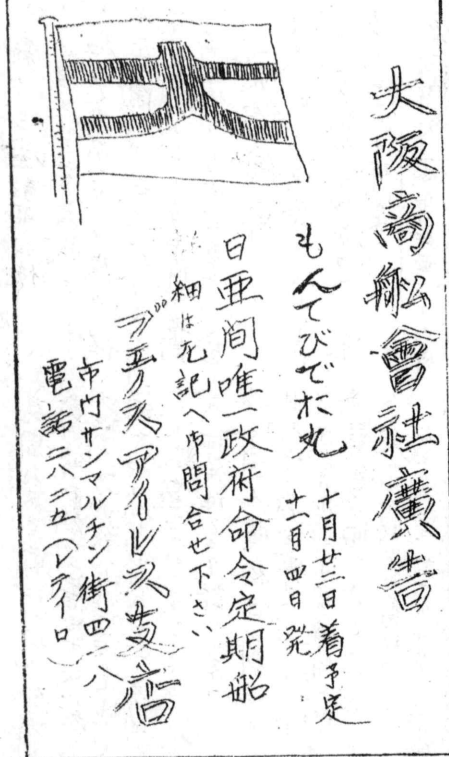 大阪商舩會社廣告
もんてびでお丸
十月廿二日着予定
十一月四日発
日亜间唯一政府命令定期船
細は左記へ御問合せ下さい
ブエノスアイレス支店
市内サンマルチン街四一八
電話二八二五(レティロ)